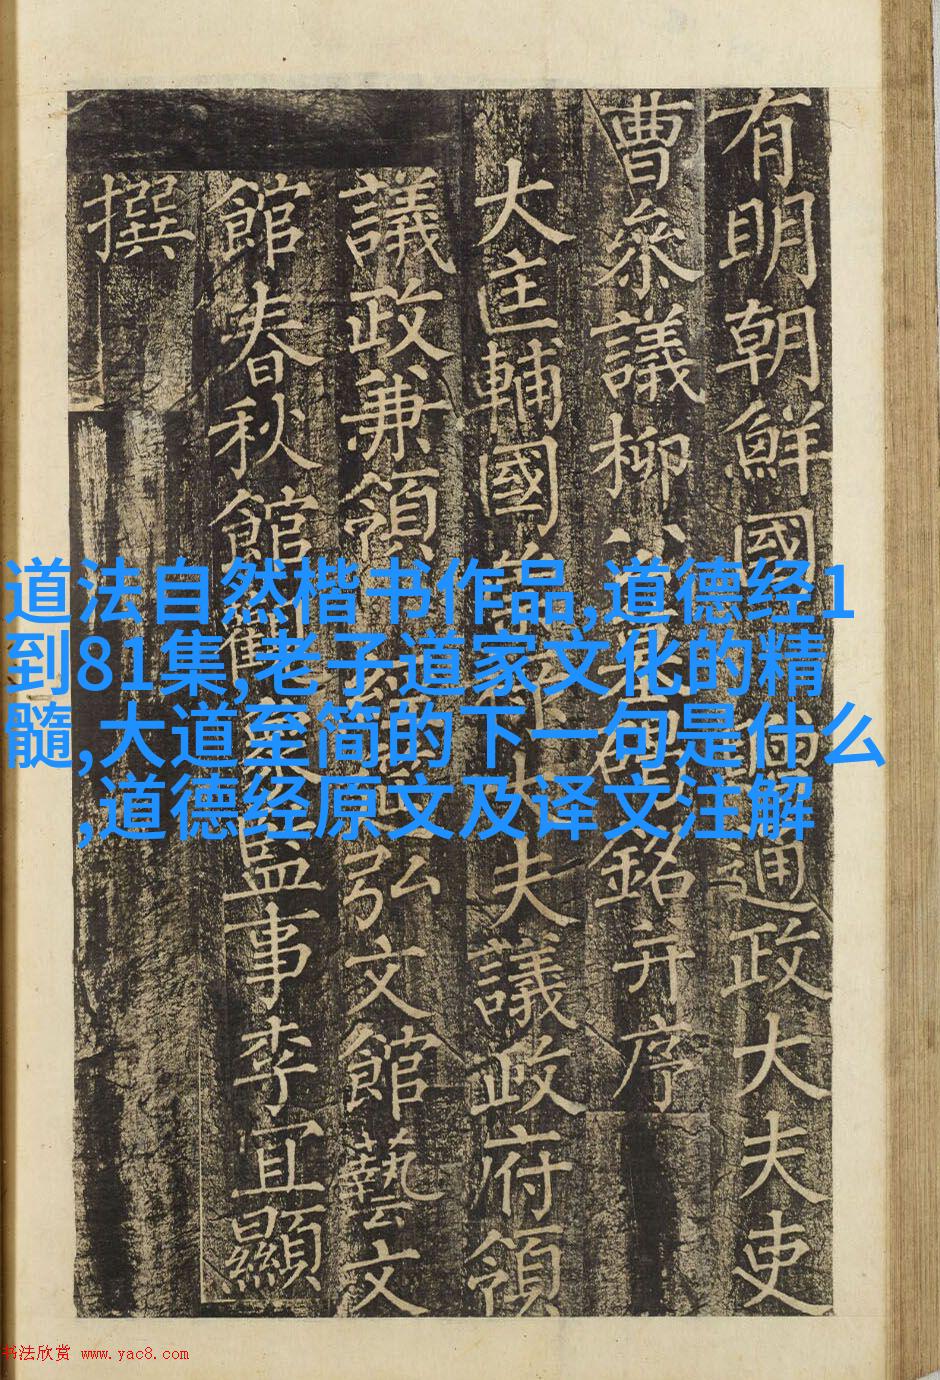 有明朝鮮國 通政大夫吏
曹叅議柳公墓碣銘并序
大匡輔國崇祿大夫議政府領
議政兼領經筵弘文館藝文
館春秋館觀象監事李宜顯
撰
道法自然楷书作品,道德经1
到81集,老子道家文化的精
髓,大道至简的下一句是什么
,道德经原文及译文注解
书法欣赏 www.yac8.com